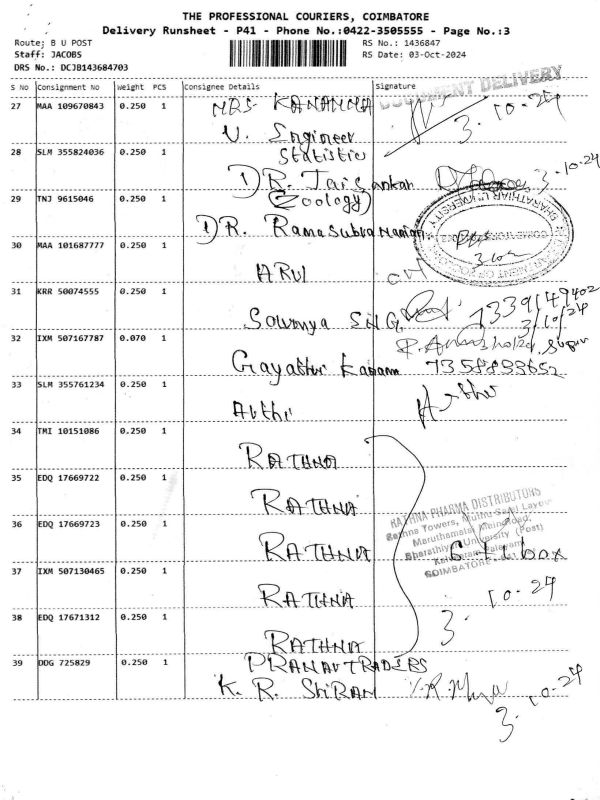 THE PROFESSIONAL COURIERS, COIMBATORE
Delivery Runsheet - P41 - Phone No.:0422-3505555 - Page No.:3
Route: B U POST
RS No.: 1436847
Staff: JACOBS
RS Date: 03-Oct-2024
DRS No.: DCJB143684703
S No Consignment No Weight PCS Consignee Details Signature
DOCUMENT DELIVERY
27 MAA 109670843 0.250 1 MRS KANAMMA
3.10.24
V. Engineer
28 SLM 355824036 0.250 1 Statistic
DR. Jai Sankar 3.10.24
29 TNJ 9615046 0.250 1 (Zoology)
DR. Ramasubramanian
BHARATHIAR UNIVERSITY
30 MAA 101687777 0.250 1
ARUL
31 KRR 50074555 0.250 1
Sowmya 7339149402
3/10/24
32 IXM 507167787 0.070 1
Gayathri 7358893652
33 SLM 355761234 0.250 1
34 TMI 10151086 0.250 1
RATHNA
35 EDQ 17669722 0.250 1
RATHNA
RATHNA PHARMA DISTRIBUTORS
Rathna Towers, Muthu Layout
Maruthamalai Main Road,
36 EDQ 17669723 0.250 1
Bharathiyar University (Post)
RATHNA 6 box
COIMBATORE
37 IXM 507130465 0.250 1
RATHNA 3.10.24
38 EDQ 17671312 0.250 1
RATHNA
39 DDG 725829 0.250 1 PRANAV TRADERS
K. R. SRIRAM
3.10.24